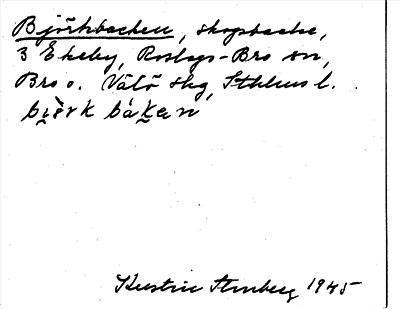 Björkbacken, skogsbacke,
3 Ekeby, Roslags-Bro sn,
Bro o. Vätö skg, Sthlms l.
bjö̀rk bákęn
Kerstin Stenberg 1945